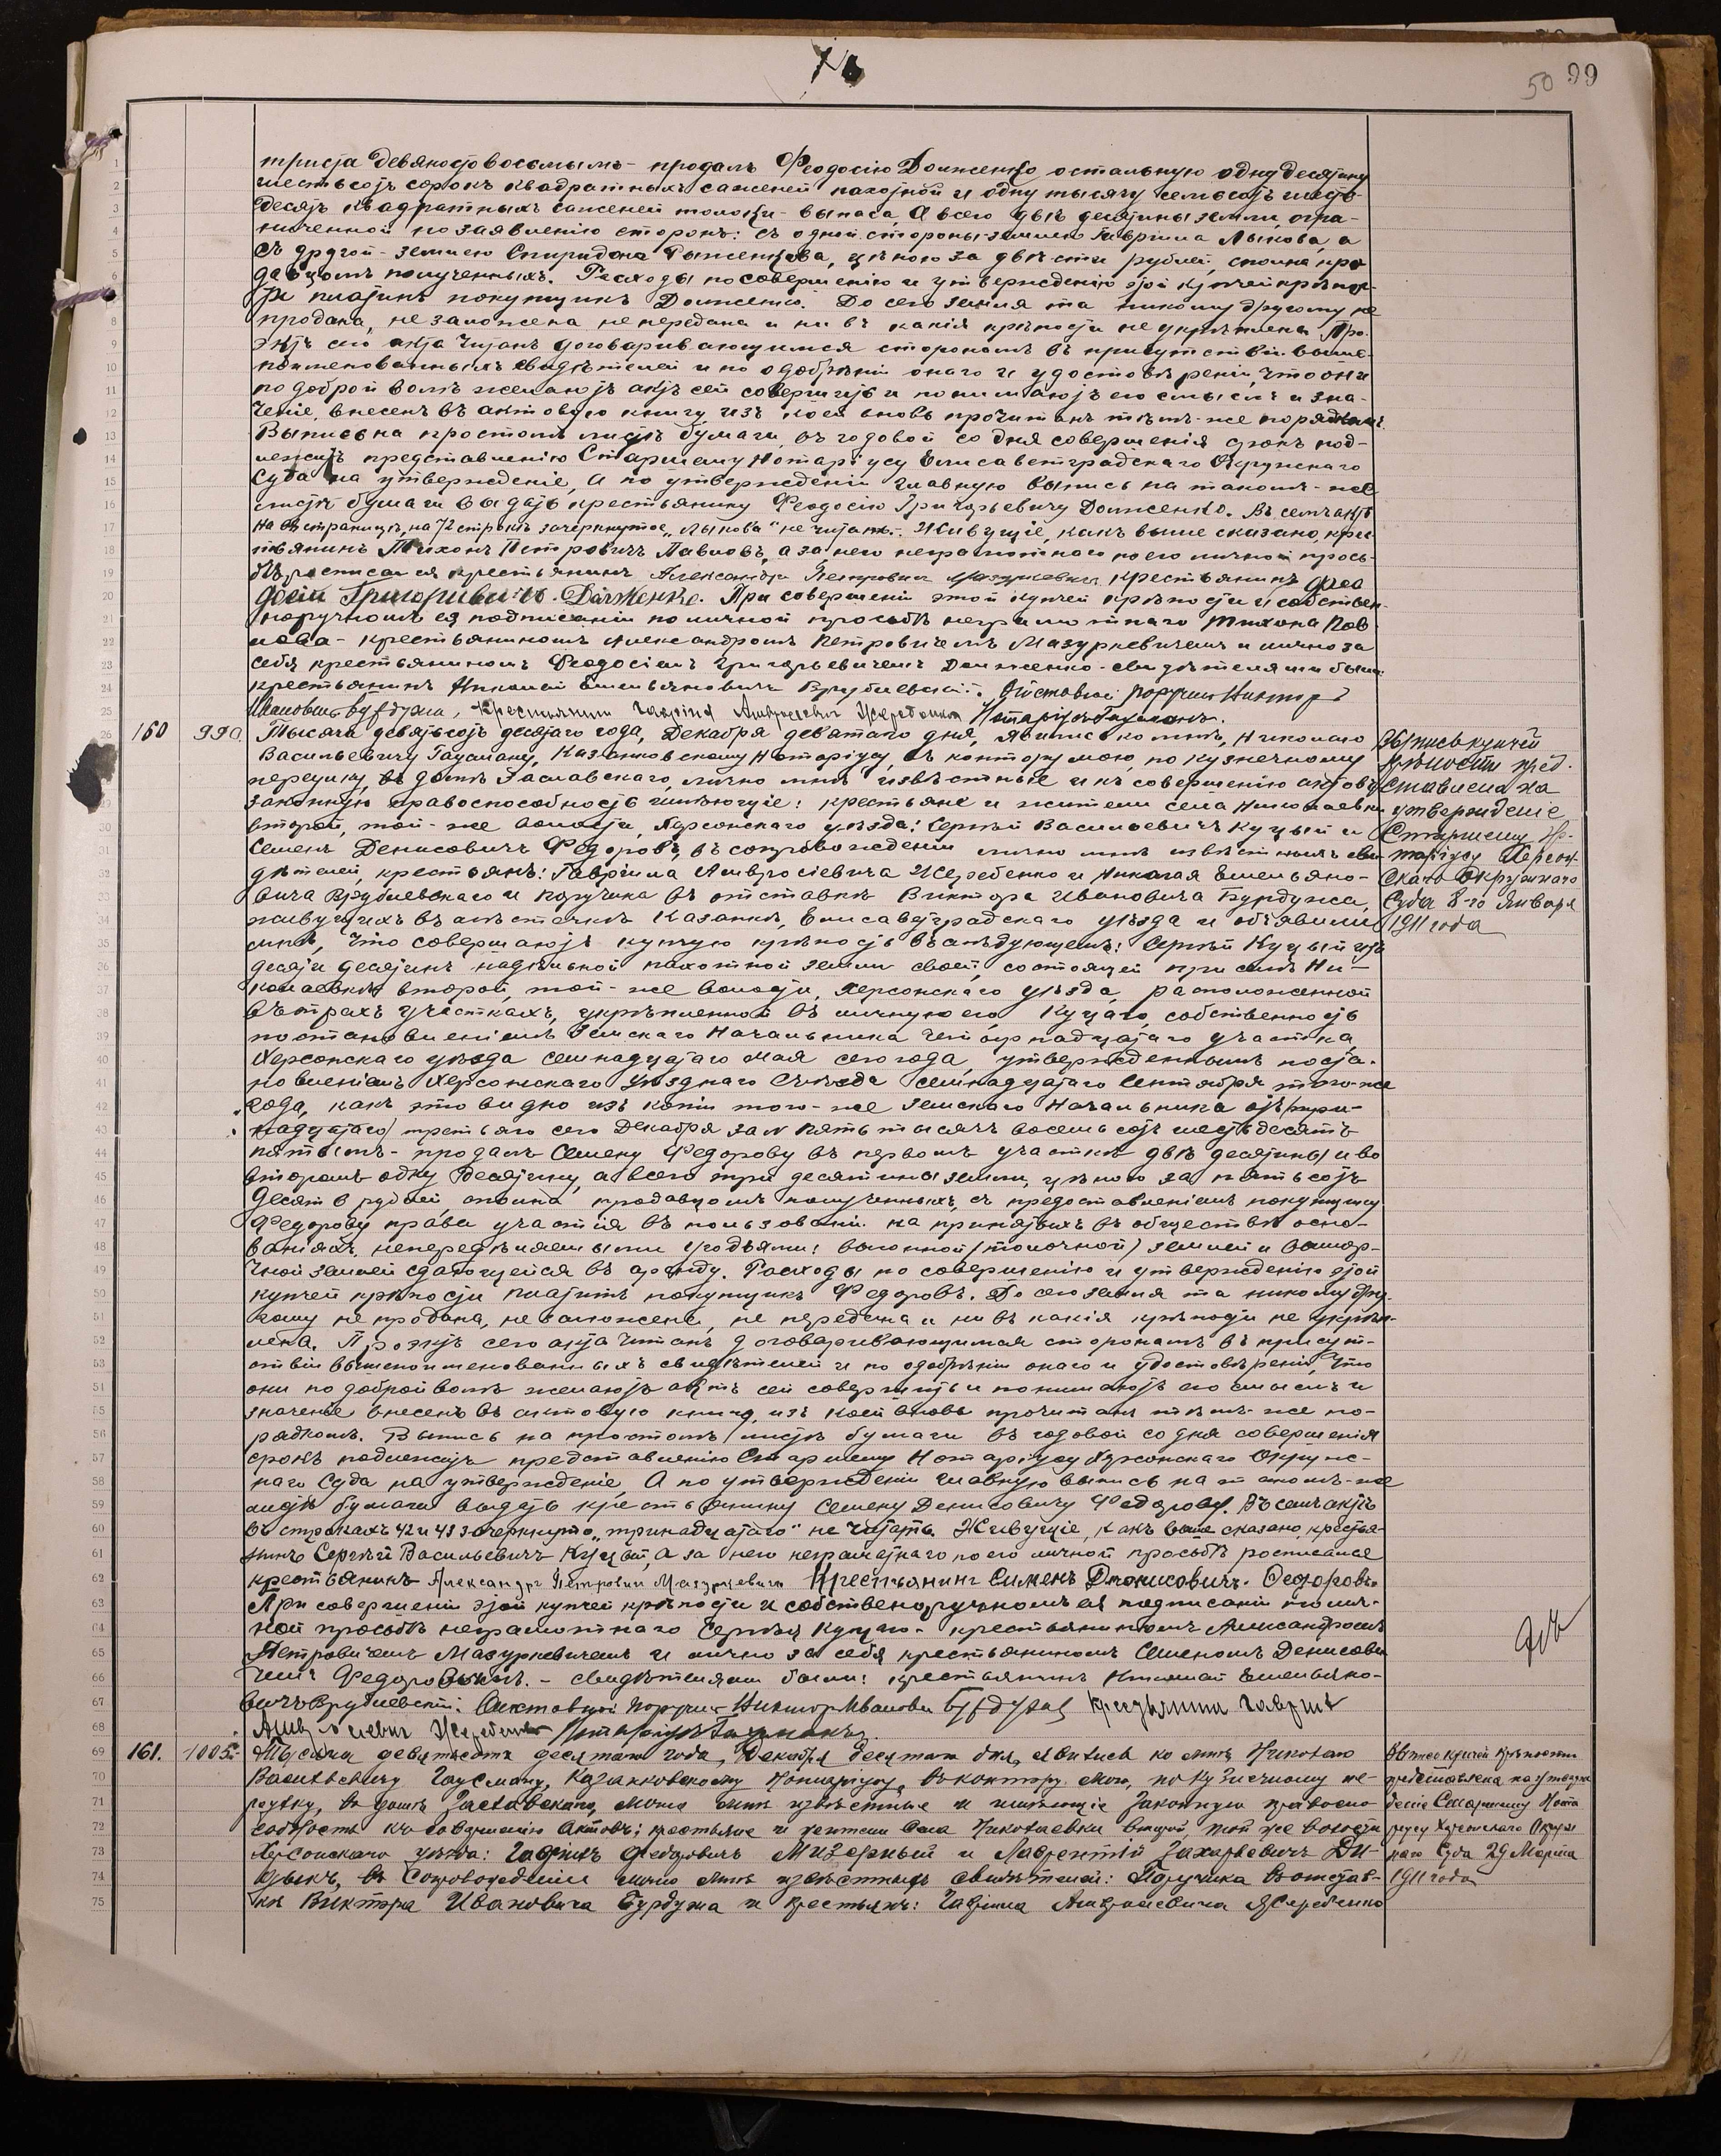 50 99
триста девяносто восьмымъ - продалъ Феодосію Долженко остальную одну десятину
шестьсотъ сорокъ квадратныхъ саженей пахотной и одну тысячу семьсотъ шесть-
десятъ квадратныхъ саженей толоки - выпаса, а всего двѣ десятины земли, огра-
ниченной по заявленію сторонъ: съ одной стороны - землею Гавріила Лыкова, а
съ другой - землею Спиридона Рыженкова, цѣною за двѣсти рублей, сполна про-
давцомъ полученныхъ. Расходы по совершенію и утвержденію этой купчей крѣпос-
ти платитъ покупщикъ Долженко. До сего земля та никому другому не
продана, не заложена не передана и ни въ какія крѣпости не укрѣплена. Про-
эктъ сего акта читанъ договаривающимся сторонамъ въ присутствіи выше-
поименованныхъ свидѣтелей и по одобреніи онаго и удостовѣреніи, что они
по доброй волѣ желаютъ актъ сей совершить и понимаютъ его смыслъ и зна-
ченіе, внесенъ въ актовую книгу, изъ коей вновь прочитанъ тѣмъ-же порядкомъ.
Выпись на простомъ листѣ бумаги, въ годовой со дня совершенія срокъ под-
лежитъ представленію Старшему Нотаріусу Елисаветградскаго Окружнаго
Суда на утвержденіе, а по утвержденіи главную выпись на такомъ-же
листѣ бумаги выдать крестьянину Феодосію Григорьевичу Долженко. Въ семъ актѣ
на страницѣ, на 72 строкѣ зачеркнутое „Лыкова" не читать. Живущіе, какъ выше сказано, крес-
тьянинъ Тихонъ Петровичъ Павловъ, а за него неграмотнаго по его личной прось-
бѣ росписался крестьянинъ Александръ Петровичъ Мазуркевичъ крестьянинъ Феа
досiй Григоривичъ. Долженко. При совершеніи этой купчей крѣпости и собствен-
норучномъ ея подписаніи по личной просьбѣ неграмотнаго Тихона Пав-
лова - крестьяниномъ Александромъ Петровичемъ Мазуркевичемъ и лично за
себя крестьяниномъ Феодосіемъ Григорьевичемъ Долженко - свидѣтелями были:
крестьянинъ Николай Емельяновичъ Врублевскій. Отставной поручикъ Викторъ
Ивановичъ Бурдужа, Крестьянинъ Гавріилъ Амвросіевичъ Жеребенко Нотаріусъ Гаусманъ.
160 990. Тысяча девятьсотъ десятаго года, Декабря девятаго дня, явились ко мнѣ, Николаю
Васильевичу Гаусману, Казанковскому Нотаріусу, въ контору мою, по Кузнечному
переулку, въ домѣ Заславскаго, лично мнѣ извѣстные и къ совершенію актовъ
законную правоспособность имѣющіе: крестьяне и жители села Николаевки
второй, той-же волости, Херсонскаго уѣзда: Сергѣй Васильевичъ Куцый и
Семенъ Денисовичъ Федоровъ, въ сопровожденіи лично мнѣ извѣстныхъ сви-
дѣтелей, крестьянъ: Гавріила Амвросіевича Жеребенко и Николая Емельяно-
вича Врублевскаго и поручика въ отставкѣ Виктора Ивановича Бурдужа,
живущихъ въ мѣстечкѣ Казанкѣ, Елисаветградскаго уѣзда и объявили
мнѣ, что совершаютъ купчую крѣпость въ слѣдующемъ: Сергѣй Куцый изъ
десяти десятинъ надѣльной пахотной земли своей, состоящей при селѣ Ни-
колаевкѣ второй, той-же волости, Херсонскаго уѣзда, расположенной
въ трехъ участкахъ, укрѣпленной въ личную его, Куцаго, собственность
постановленіемъ Земскаго Начальника четырнадцатаго участка,
Херсонскаго уѣзда семнадцатаго Мая сего года, утвержденнымъ поста-
новленіемъ Херсонскаго Уѣзднаго Съѣзда семнадцатаго Сентября того-же
года, какъ это видно изъ копіи того-же Земскаго Начальника отъ /три-
надцатаго/ третьяго сего Декабря за N пять тысячъ восемьсотъ шестьдесятъ
пятымъ - продалъ Семену Федорову въ первомъ участкѣ двѣ десятины и во
второмъ одну десятину, а всего три десятины земли, цѣною за пятьсотъ
десять рублей, сполна продавцомъ полученныхъ, съ предоставленіемъ покупщику
Федорову права участія въ пользованіи на принятыхъ въ обществѣ осно-
ваніяхъ, непередѣляемыми угодьями: выгонной /толочной/ землей и
землей сдающейся въ аренду. Расходы по совершенію и утвержденію этой
купчей крѣпости платитъ покупщикъ Федоровъ. До сего земля та никому дру-
гому не продана, не заложена, не передана и ни въ какія крѣпости не укрѣп-
лена. Проэктъ сего акта читанъ договаривающимся сторонамъ въ присут-
ствіи вышепоименованныхъ свидѣтелей и по одобреніи онаго и удостовѣреніи, что
они по доброй волѣ желаютъ актъ сей совершить и понимаютъ его смыслъ и
значеніе внесенъ въ актовую книгу, изъ коей вновь прочитанъ тѣмъ-же по-
рядкомъ. Выпись на простомъ листѣ бумаги въ годовой со дня совершенія
срокъ подлежитъ представленію Старшему Нотаріусу Херсонскаго Окруж-
наго Суда на утвержденіе, а по утвержденіи главную выпись на такомъ-же
листѣ бумаги выдать крестьянину Семену Денисовичу Федорову. Въ семъ актѣ
въ строкахъ 42 и 43 зачеркнуто „тринадцатаго" не читать. Живущіе, какъ выше сказано, крестья-
нинъ Сергѣй Васильевичъ Куцый, а за него неграмотнаго по его личной просьбѣ росписался
крестьянинъ Александръ Петровичъ Мазуркевичъ Крестьянинг Сименъ Дэнисовичъ. Федоровъ.
При совершеніи этой купчей крѣпости и собственоручномъ ея подписаніи по лич-
ной просьбѣ неграмотнаго Сергѣя Куцаго - крестьяниномъ Александромъ
Петровичемъ Мазуркевичемъ и лично за себя крестьяниномъ Семеномъ Денисови-
чемъ Федоровымъ. - свидѣтелями были: крестьянинъ Николай Емельяно-
вичъ Врублевскій. Отставной Поручикъ Викторъ Ивановичъ Бурдужа, Крестьянинъ Гавріилъ
Амвросіевичъ Жеребенко Нотаріусъ Гаусманъ.
161. 1005. Тысяча девятьсотъ десятаго года, Декабря десятаго дня, явились ко мнѣ Николаю
Васильевичу Гаусману, Казанковскому Нотаріусу, въ контору мою, по Кузнечному пе-
реулку, въ домѣ Заславскаго, лично мнѣ извѣстные и имѣющіе законную правоспо-
собность къ совершенію актовъ: крестьяне и жители села Николаевки второй, той же волости
Херсонскаго уѣзда: Гавріилъ Федоровичъ Мизерный и Лаврентій Захарьевичъ Ди-
дыкъ, въ сопровожденіи лично мнѣ извѣстныхъ свидѣтелей: Поручика въ отстав-
кѣ Виктора Ивановича Бурдужа и крестьянъ: Гавріила Амвросіевича Жеребенко
Выпись купчей
крѣпости пред-
ставлена на
утвержденіе
Старшему Но-
таріусу Херсон-
скаго Окружнаго
Суда 8-го Января
1911 года
Выпись купчей крѣпости
представлена на утверж
деніе Старшему Нота
ріусу Херсонскаго Окруж
наго Суда 29 Марта
1911 года